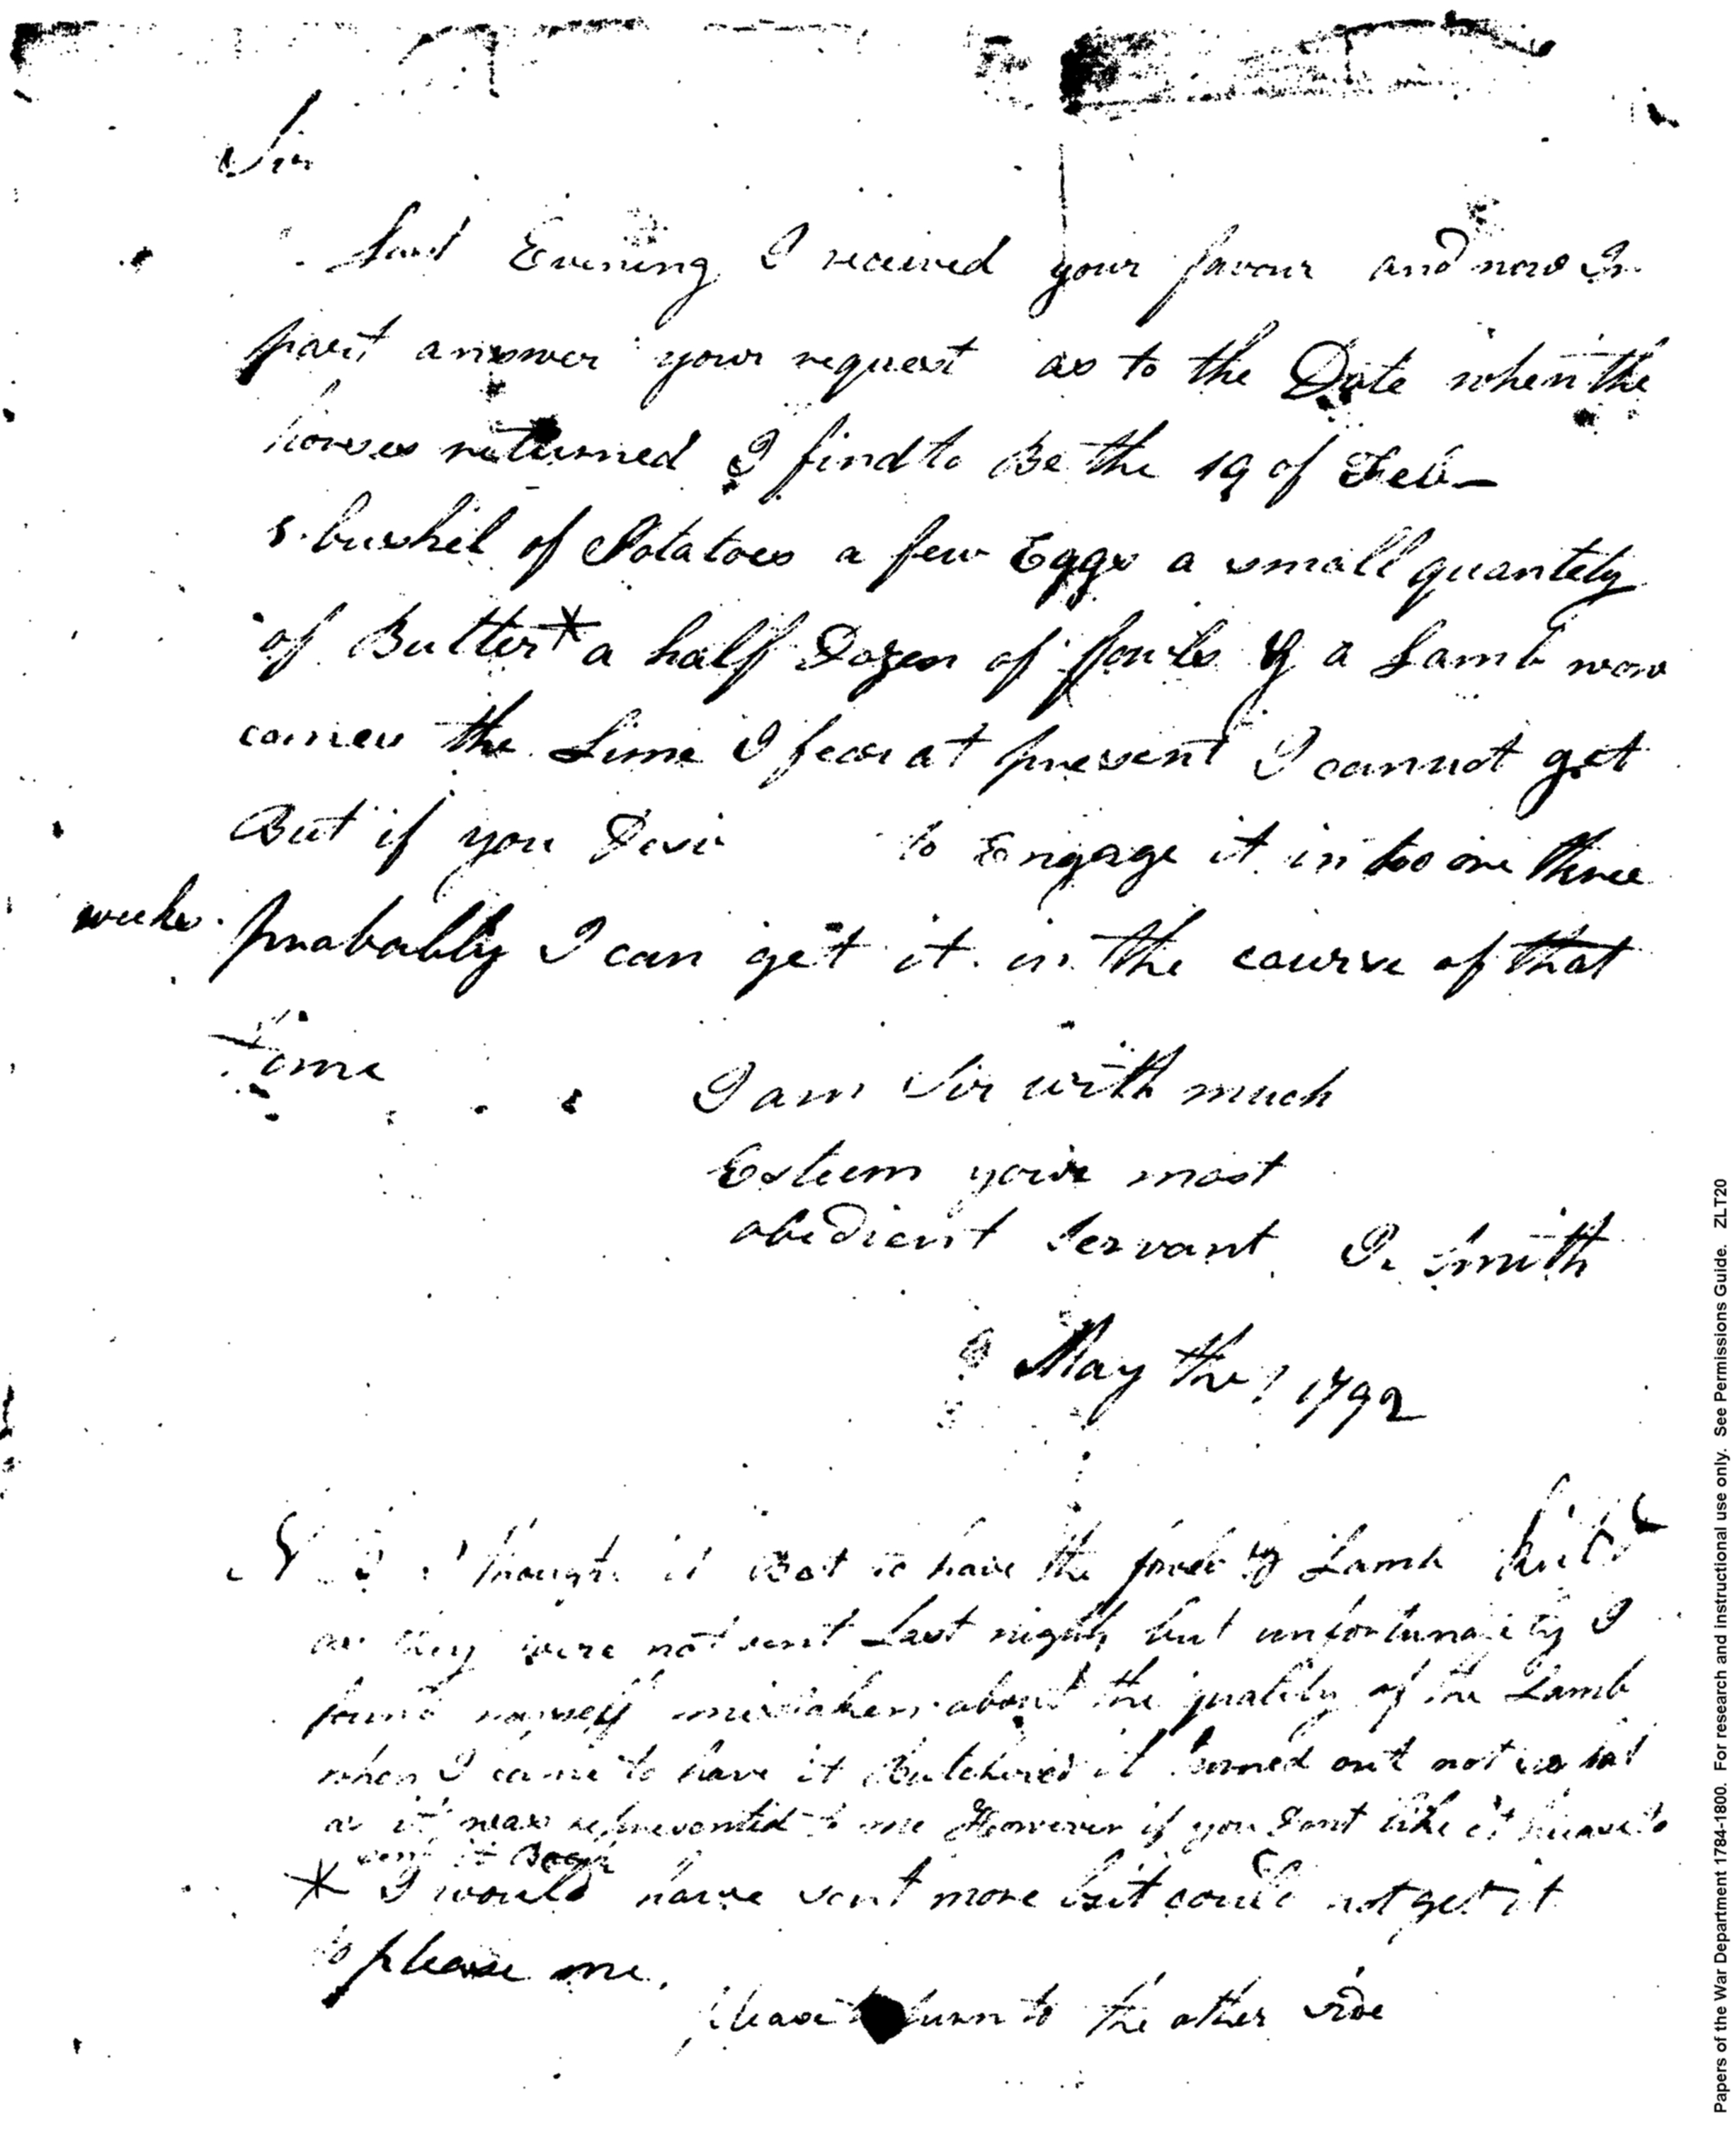 Sir
Last Evening I received your favour and now In
part answer your request as to the Date when the
horses returned I find to Be the 19 of Feb—
5 bushel of Potatoes a few Eggs a small quantety
of Butter* a half Dozen of fowls & a Lamb now
comes the Lime I fear at present I cannot get
But if you Desi to Engage it in too or three
weeks probably I can get it in the course of that
Time
I am Sir with much
Esteem your most
obedient Servant Smith
May the 1 1792
N thought it Best to have the fowls & Lamb kil
as they were not sent Last night but unfortunately I
found myself mistaken about the quality of the Lamb
when I came to have it Butchered it turned out not so fat
as it was represented to me However if you Dont like it please to
send it Back
* I would have sent more but could not get it
to please me.
please turn to the other side
Papers of the War Department 1784-1800. For research and instructional use only. See Permissions Guide. ZLT20